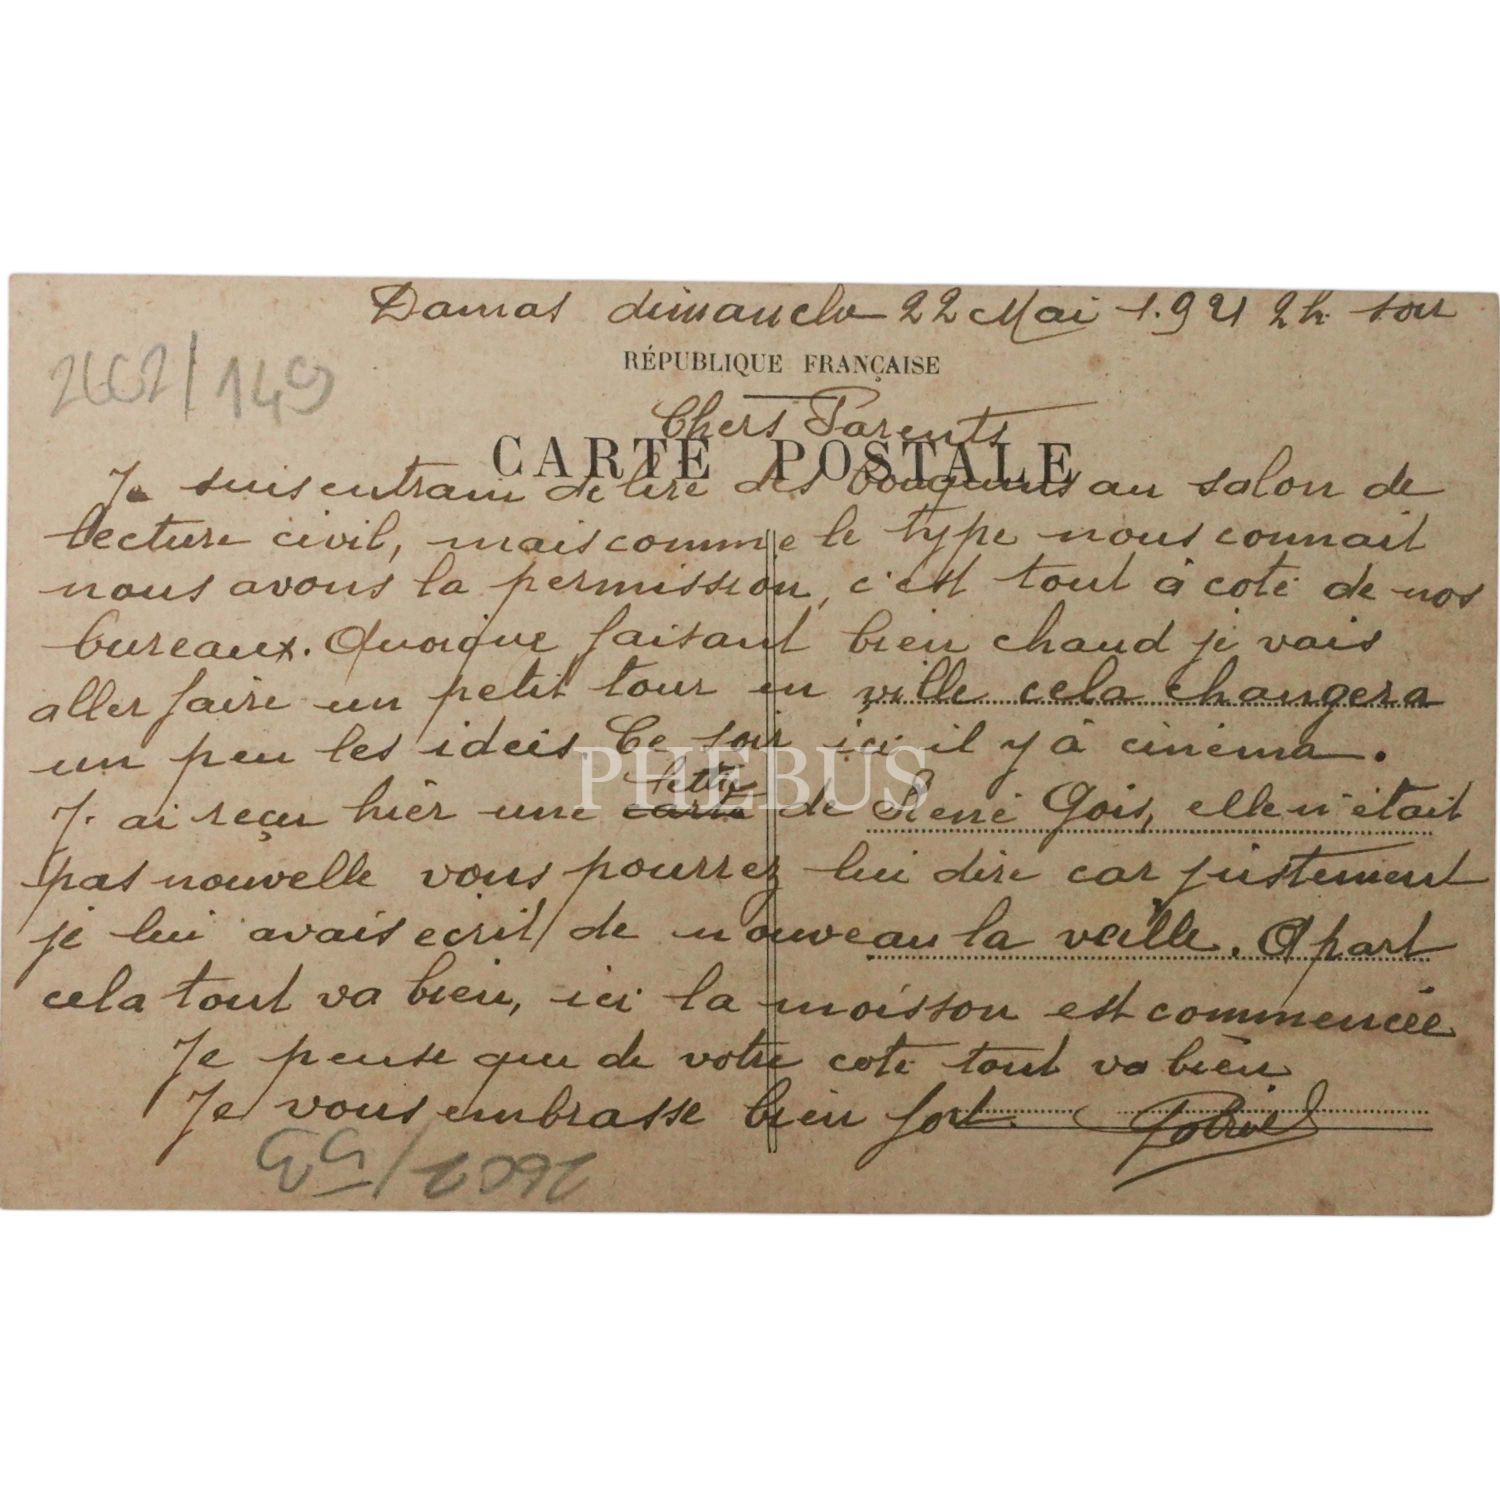 Damas dimanche 22 Mai 1.921 2h soir
RÉPUBLIQUE FRANÇAISE
2662/149
Chers Parents
CARTE POSTALE
Je suis entrain de lire des bouquins au salon de
lecture civil, mais comme le type nous connait
nous avons la permission, c'est tout à coté de nos
bureaux. Quoique faisant bien chaud je vais
aller faire un petit tour en ville cela changera
un peu les ideés Ce soir ici il y à cinéma.
PHEBUS
lettre
J. ai reçu hièr une carte de René Gois, elle n'était
pas nouvelle vous pourrez lui dire car justement
je lui avais ecrit de nouveau la veille. A part
cela tout va bien, ici la moisson est commencée
Je pense que de votre coté tout va bien
Je vous embrasse bien fort.